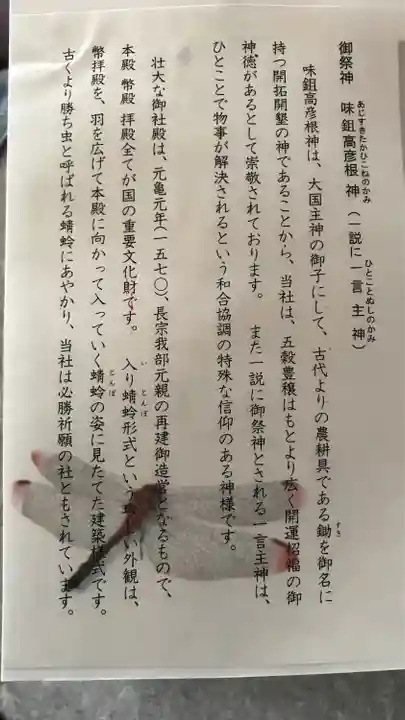 御祭神　味鉏高彦根神（一説に一言主神）
あじすきたかひこねのかみ　ひとことぬしのかみ
味鉏高彦根神は、大国主神の御子にして、古代よりの農耕具である鋤を御名に
すき
持つ開拓開墾の神であることから、当社は、五穀豊穣はもとより広く開運招福の御
神徳があるとして崇敬されております。　また一説に御祭神とされる一言主神は、
ひとことで物事が解決されるという和合協調の特殊な信仰のある神様です。
壮大な御社殿は、元亀元年（一五七〇）、長宗我部元親の再建御造営となるもので、
本殿 幣殿 拝殿全てが国の重要文化財です。　入り蜻蛉形式という珍しい外観は、
い　とんぼ
幣拝殿を、羽を広げて本殿に向かって入っていく蜻蛉の姿に見たてた建築様式です。
とんぼ
古くより勝ち虫と呼ばれる蜻蛉にあやかり、当社は必勝祈願の社ともされています。